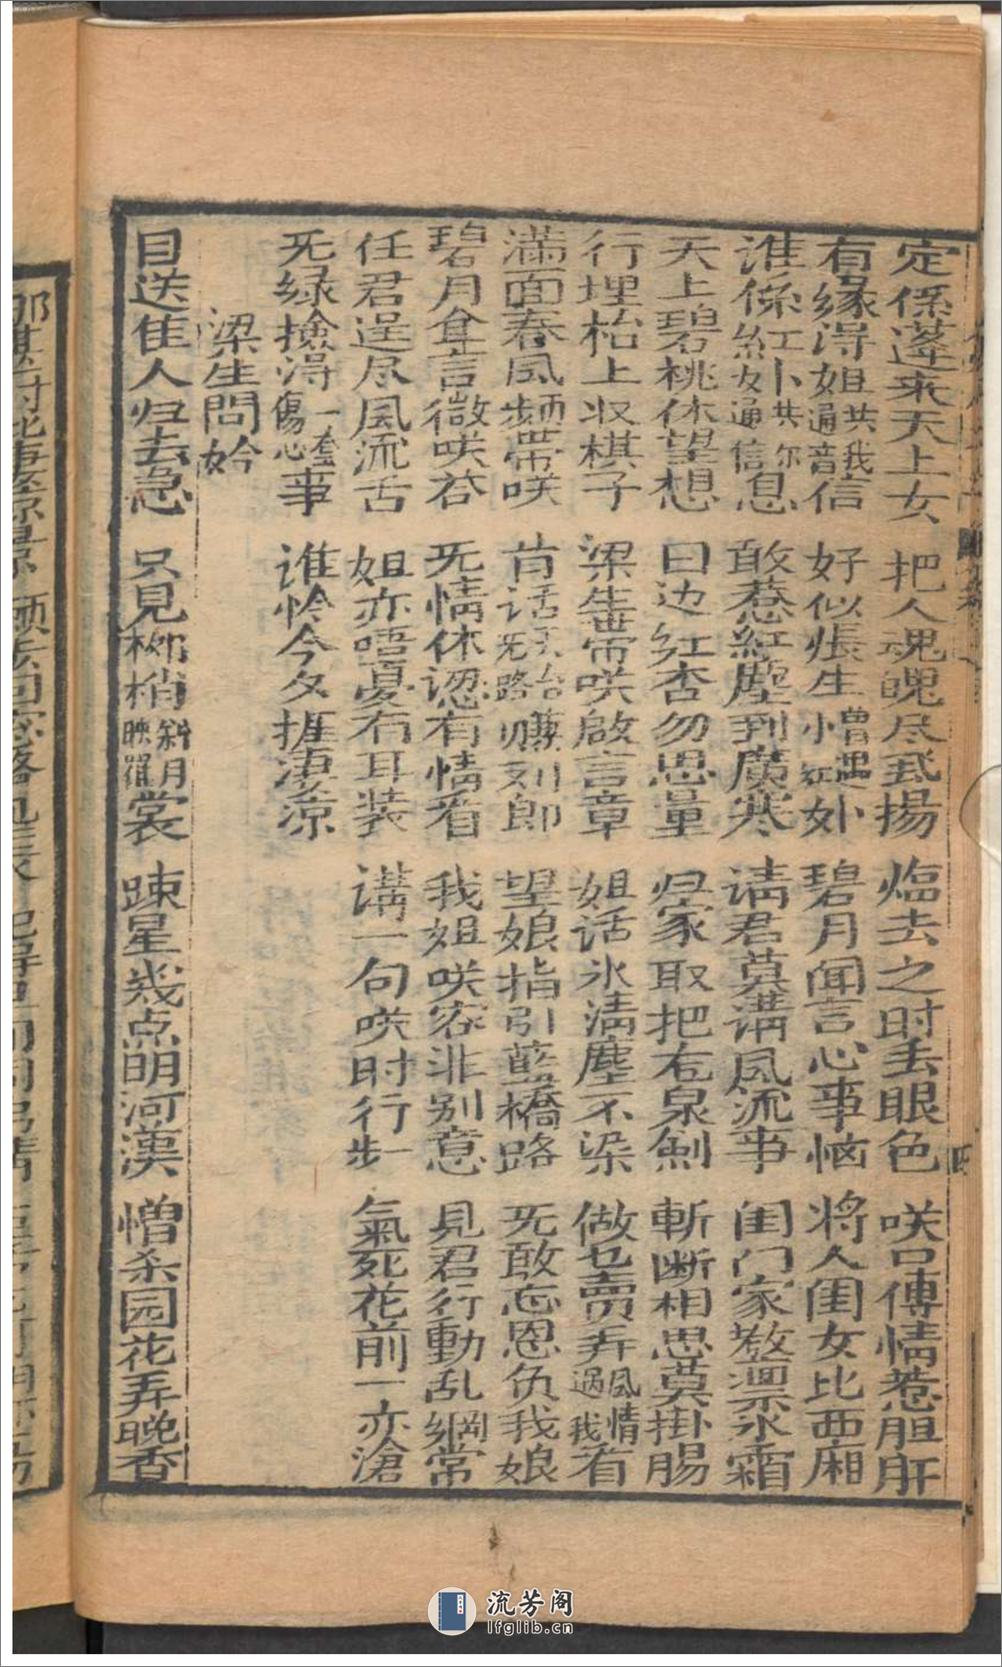 定係蓬来天上女 把人魂魄尽飛揚 临去之时丢眼色 咲口傅情惹胆肝
有缘得姐共我通音信 好似張生曾遇小紅妙 碧月闻言心事恼 将人闺女比西廂
谁係江卜共尔絲友通信息 敢惹紅塵到廣寒 请君莫讲风流事 闺门家教凛氷霜
天上碧桃休望想 日边红杏勿思量 归家取把右泉劍 斬断相思莫掛腸
行埋枱上収棋子 梁生帶咲啟言章 姐话氷清塵不染 做乜賣弄風情過我看
滿面春風頻帶咲 肯话天台无路賺刘郎 望娘指引藍橋路 无敢忘恩负我娘
碧月耸言微咲答 无情休認有情者 我姐咲容非别意 見君行動乱綱常
任君逞尽風流舌 姐亦唔憂有耳装 講一句咲时行一步 氣死花前一亦滄
无缘撿得一套傷心事 谁怜今夕捱凄凉
梁生問妗
目送隹人归去急 只見柳梢斜月映羅裳 踈星幾点明河漢 憎杀园花弄晚香
流芳阁
lfglib.cn